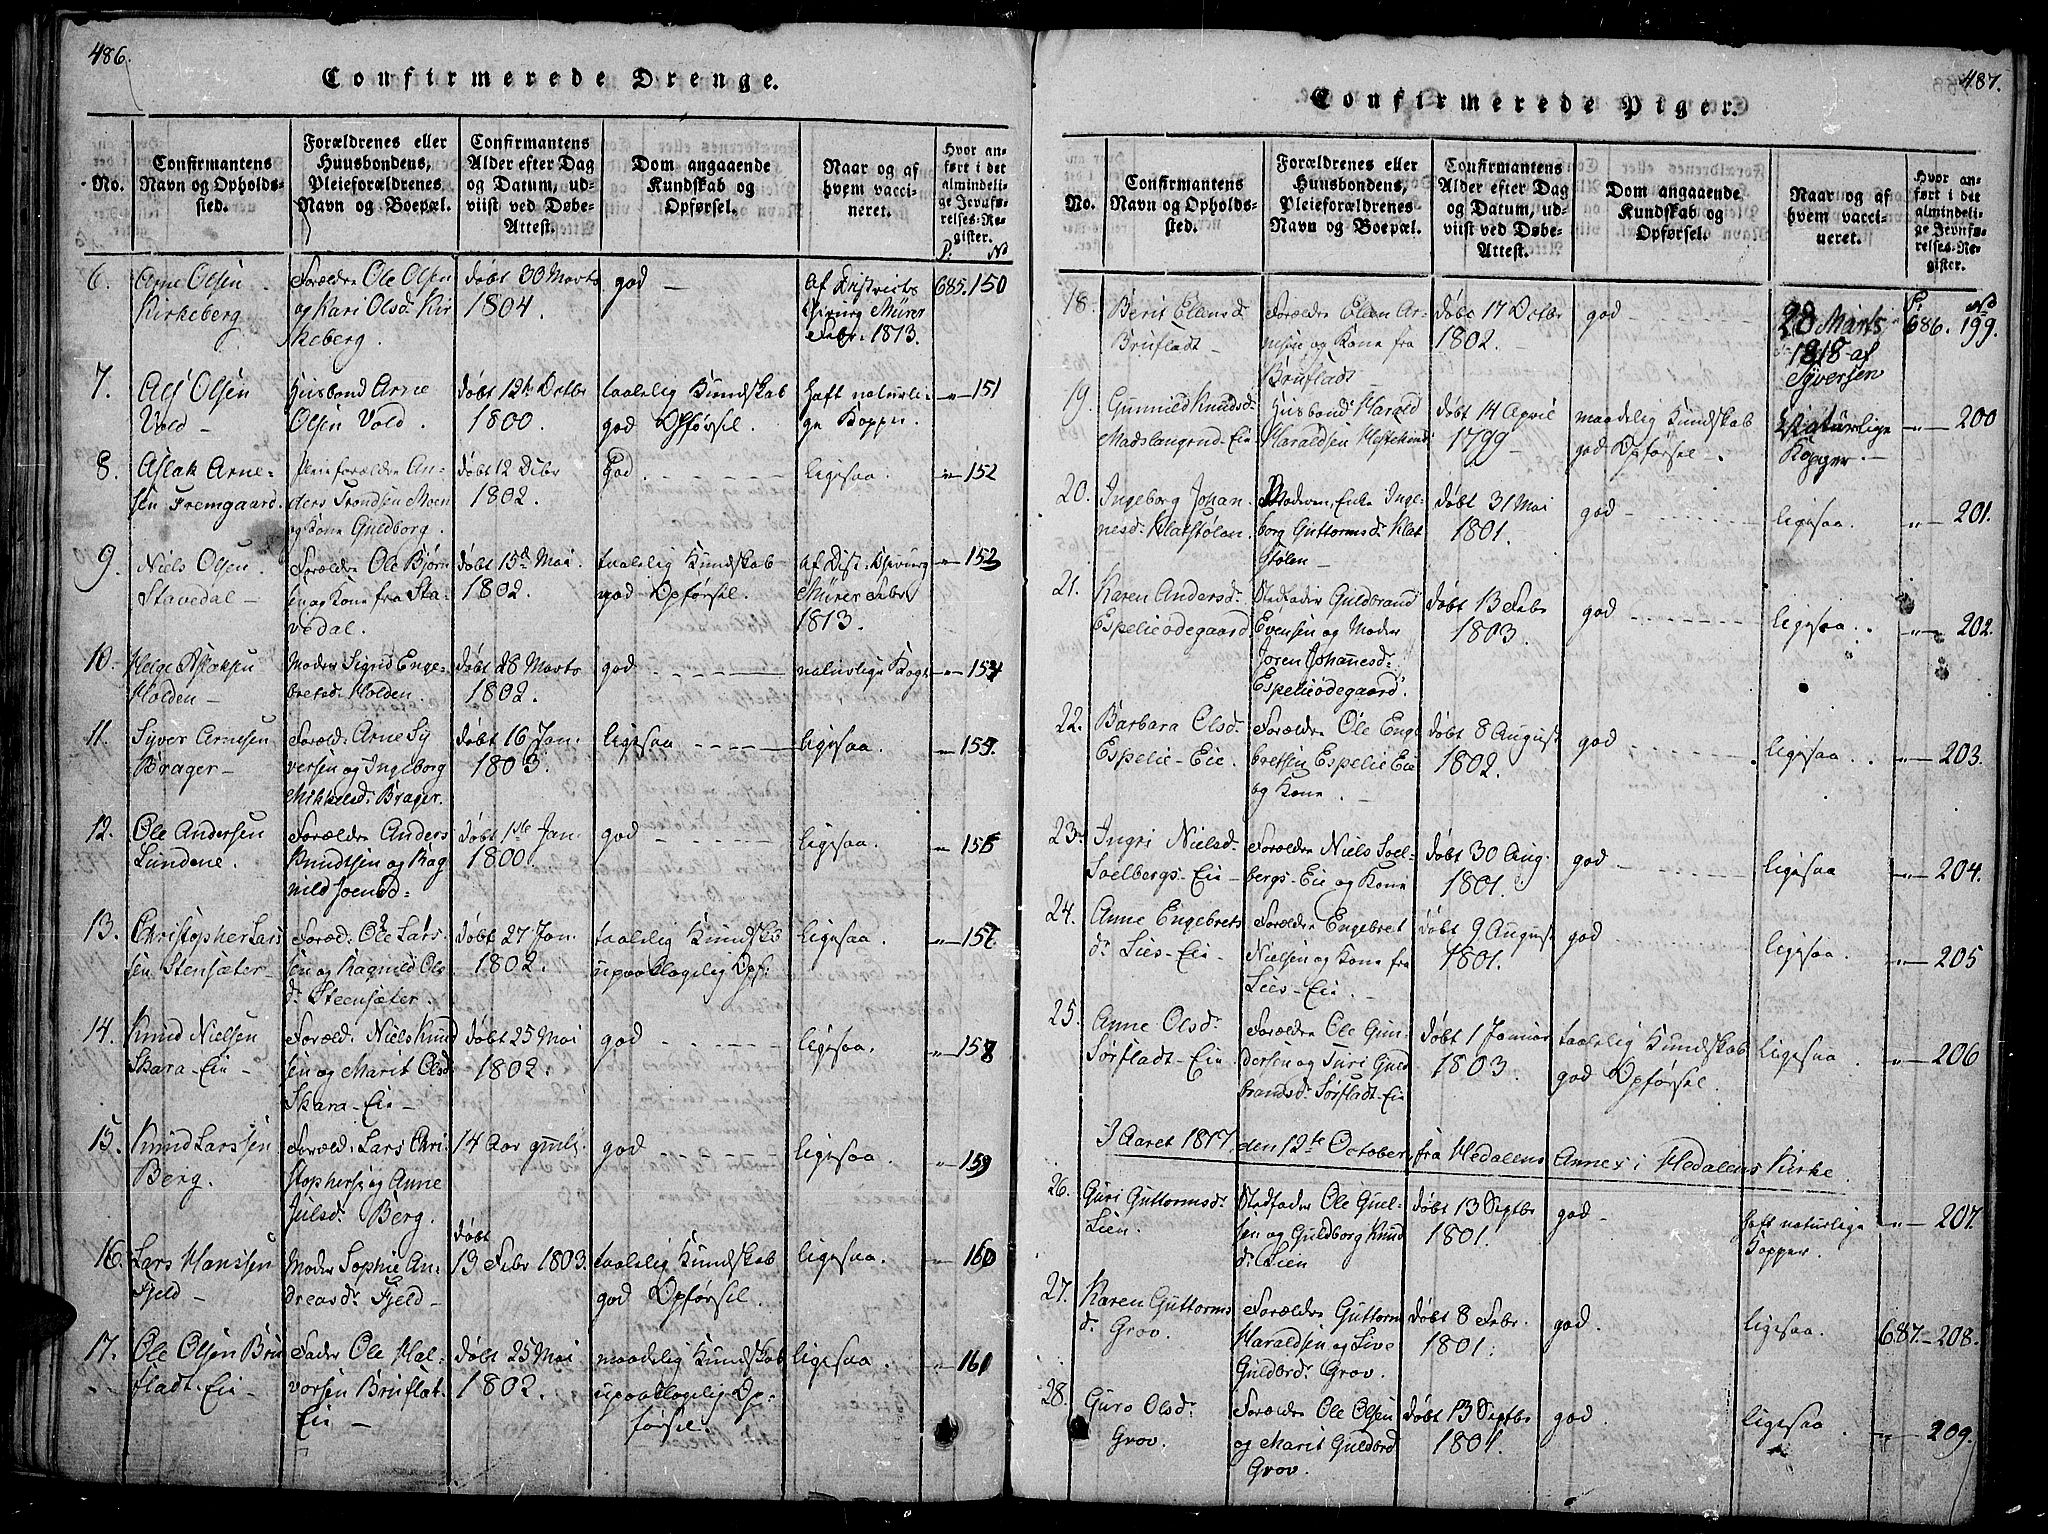 486.
Confirmerede Drenge.
No.
Confirmantens
Navn og Opholds-
sted.
Forældrenes eller
Huusbondens,
Pleieforældrenes
Navn og Boepæl.
Confirmantens
Alder efter Dag
og Datum, ud-
viist ved Døbe-
Attest.
Dom angaaende
Kundskab og
Opførsel.
Naar og af
hvem vacci-
neret.
Hvor an-
ført i det
almindeli-
ge Jevnfø-
relses-Re-
gister.
P. No
6.
Arne Olsen
Kirkeberg
Forældre Ole Olsen
og Kari Olsd. Kir
keberg.
døbt 30 Marts
1804.
god —
af Districts
Chirurg Mürer
Febr. 1813.
685. 150
7.
Alf Olsen
Vold —
Husbond Arne
Olsen Vold.
døbt 12te Octbr
1800.
taalelig Kundskab
god Opførsel.
haft naturli-
ge Kopper.
" — 151
8.
Aslak Arne-
sen Fremgaard.
Pleieforældre An-
ders Trondsen Moen
og Kone Guldborg.
døbt 12 Dcbr
1802.
God.
ligesaa.
" — 152
9.
Niels Olsen
Stavedal —
Forældre Ole Bjørn
sen og Kone fra Sta-
vedal.
døbt 15de Mai
1802.
taalelig Kundskab
god Opførsel.
af Dist: Chirurg
Mürer Febr
1813.
" — 153
10.
Helge Aslaksen
Holden —
Moder Sigrid Enge-
bretsd. Holden.
døbt 28 Marts
1802.
god
naturlige Kop:
" — 154
11.
Syver Arnesen
Brager —
Foræld: Arne Sy
versen og Ingeborg
Mikkelsd: Brager.
døbt 16 Jan.
1803.
ligesaa
ligesaa.
" 155.
12.
Ole Andersen
Lundene.
Forældre Anders
Knudtsen og Rag
nild Joensd:
døbt 1ste Jan.
1800.
god
ligesaa.
" 156
13.
Christopher Lars
sen Stensæter —
Foræd: Ole Lars-
sen og Ragnild Ols
dr. Steensæter.
døbt 27 Jan.
1802.
taalelig Kundskab
upaaklagelig Opf:
ligesaa.
" — 157
14.
Knud Nielsen
Skara-Eie —
Foræld: Niels Knud
sen og Marit Olsd:
Skara-Eie —
døbt 25 Mai
1802.
god
ligesaa.
" — 158
15.
Knud Larssen
Berg.
Foræld: Lars Chri-
stophersen og Anne
Julsd: Berg.
14 Aar gml:
god
ligesaa
" — 159
16.
Lars Hanssen
Fjeld —
Moder Sophie An-
dreasdr. Fjeld —
døbt
13 Febr 1803.
taalelig Kundskab
god Opførsel.
ligesaa.
" — 160
17.
Ole Olsen Bru
fladt-Eie —
Fader Ole Hal-
vorsen Bruflat
Eie —
døbt 25 Mai
1802.
maadelig Kundskab
upaaklagelig Op-
førsel.
ligesaa.
" 161
487.
Confirmerede Piger.
No.
Confirmantens
Navn og Opholds-
sted.
Forældrenes eller
Huusbondens,
Pleieforældrenes
Navn og Boepæl.
Confirmantens
Alder efter Dag
og Datum, ud-
viist ved Døbe-
Attest.
Dom angaaende
Kundskab og
Opførsel.
Naar og af
hvem vacci-
neret.
Hvor an-
ført i det
almindeli-
ge Jevnfø-
relses-Re-
gister.
P. No
18.
Berit Ellensd:
Brufladt —
Forældre Ellen Ar-
nesen og Kone fra
Brufladt —
døbt 17 Octbr
1802. —
god
28 Marts
1818 af
Syversen
686. 199.
19.
Gunnild Knudsd.
Madslangrud-Eie
Husbond Harald
Haraldsen
døbt 14 April
1799
maadelig Kundskab
god Opførsel —.
Naturlige
Kopper. —
" — 200
20.
Ingeborg Johan
nesd. Klatstølen
Moderen, Enke Inge-
borg Guttormsd. Klat
stølen —
døbt 31 Mai
1801.
god
ligesaa.
" — 201.
21.
Karen Andersd.
Espelieødegaard
Stedfader Guldbrand
Evensen og Moder
Joren Johannesd:
Espelieødegaard.
døbt 13 Febr
1803.
god
ligesaa.
" — 202.
22.
Barbara Olsd.
Espelie-Eie.
Forældre Ole Enge
bretsen Espelie Eie
og Kone.
døbt 8 August
1802.
god
ligesaa.
" — 203.
23.
Ingri Nielsd.
Soelbergs-Eie —
Forældre Niels Soel-
bergs-Eie og Kone
døbt 30 Aug.
1801.
god
ligesaa
" — 204.
24.
Anne Engebrets
dr. Lies-Eie —
Forældre Engebret
Nielsen og Kone fra
Lies-Eie. —
døbt 9 August
1801.
god
ligesaa.
" — 205
25.
Anne Olsdr.
Sørfladt-Eie
Forældre Ole Gun-
dersen og Turi Guld
brandsd. Sørfladt-Eie
døbt 1 Januar
1803.
taalelig Kundskab
god Opførsel.
ligesaa
" — 206
I Aaret 1817, den 12te October, fra Hedalens Annex i Hedalens Kirke.
26.
Guri Guttormsdr.
Lien.
Stedfader Ole Guul-
sen og Guldborg Knud
dr. Lien
døbt 13 Septbr
1801.
god
haft naturlige
Kopper.
" — 207.
27.
Karen Guttorms
dr. Grov.
Forældre Guttorm
Haraldsen og Live
Guldbrdr. Grov.
døbt 8 Febr.
1801.
god.
ligesaa.
687. — 208.
28.
Guro Olsdr.
Grov.
Forældre Ole Olsen
og Marit Guldbrd
Grov.
døbt 13 Septbr
1801.
god.
ligesaa
" — 209.